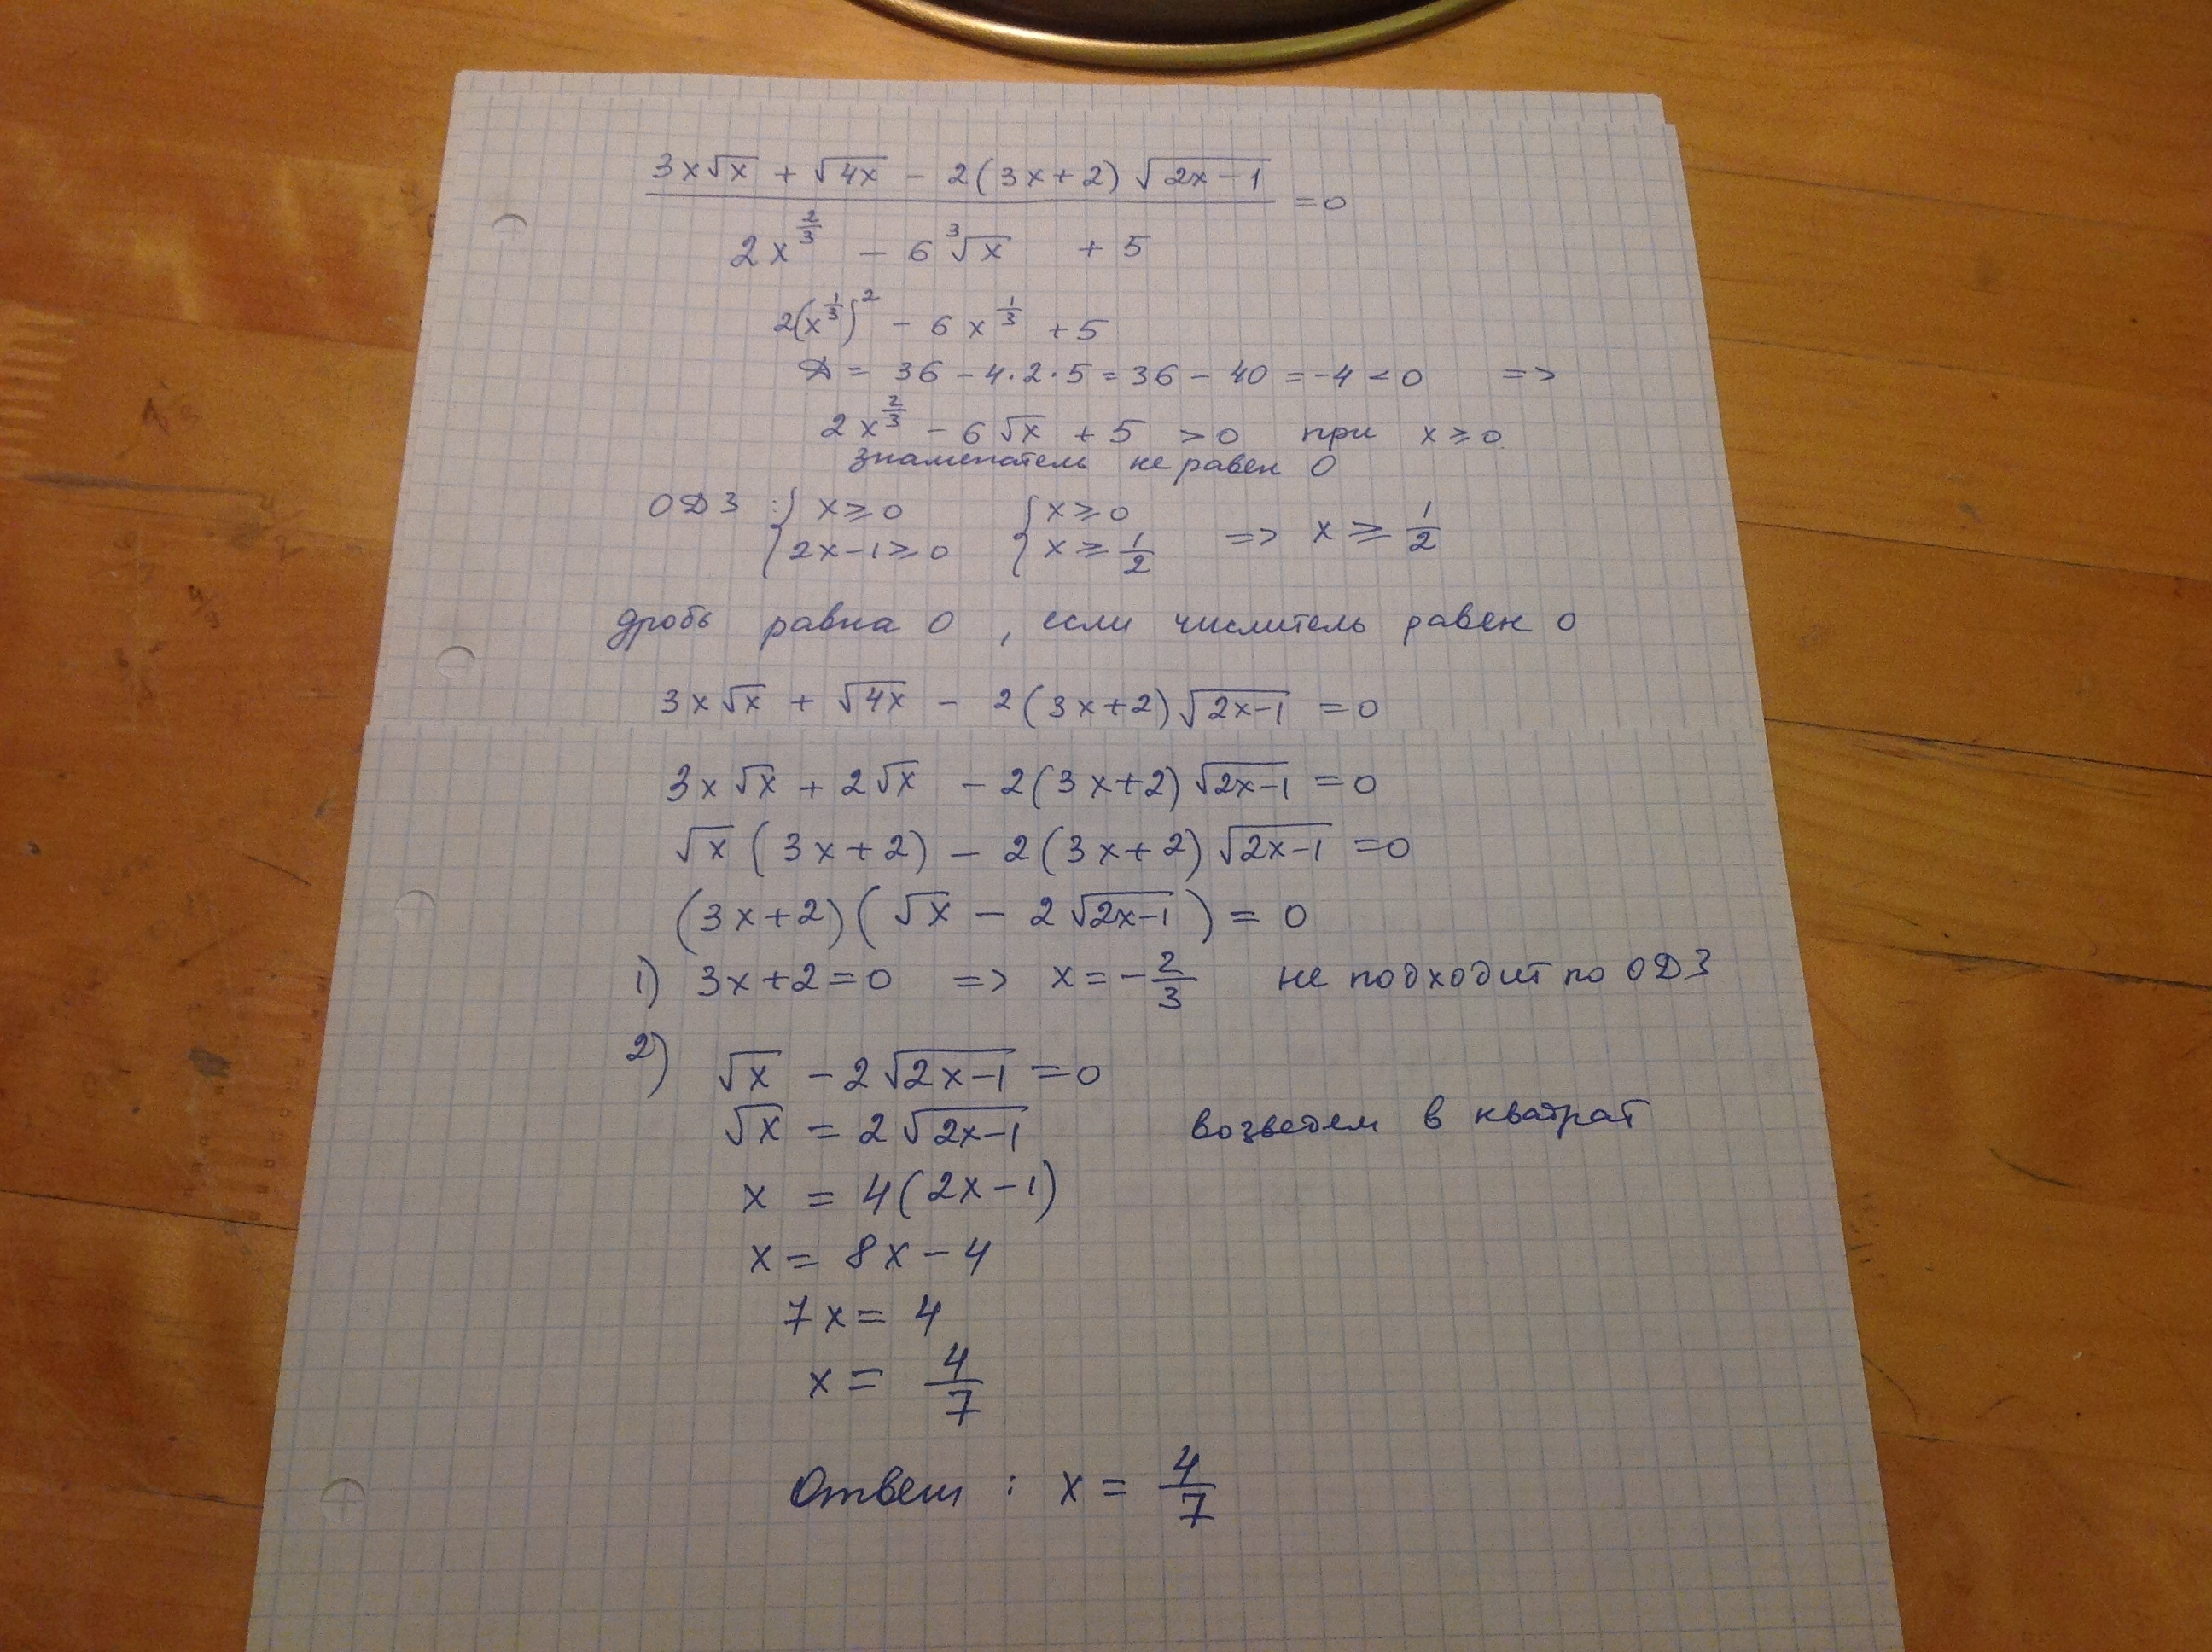 3x√x + √4x − 2(3x+2)√2x−1
= 0
2x^(2/3) − 6∛x + 5
2(x^(1/3))² − 6x^(1/3) + 5
Д = 36 − 4·2·5 = 36 − 40 = −4 < 0 =>
2x^(2/3) − 6√x + 5 > 0 при x ≥ 0
знаменатель не равен 0
ОДЗ : { x ≥ 0 { x ≥ 0
{ 2x−1 ≥ 0 { x ≥ 1/2 => x ≥ 1/2
дробь равна 0 , если числитель равен 0
3x√x + √4x − 2(3x+2)√2x−1 = 0
3x√x + 2√x − 2(3x+2)√2x−1 = 0
√x (3x+2) − 2(3x+2)√2x−1 = 0
(3x+2)(√x − 2√2x−1) = 0
1) 3x+2=0 => x = −2/3 не подходит по ОДЗ
2) √x − 2√2x−1 = 0
√x = 2√2x−1 возведем в кватрат
x = 4(2x−1)
x = 8x − 4
7x = 4
x = 4/7
Ответ : x = 4/7